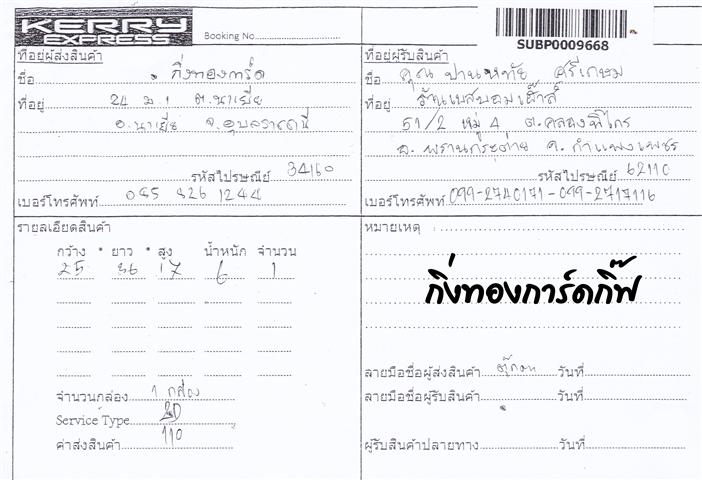 KERRY
EXPRESS
Booking No.
SUBP0009668
ที่อยู่ผู้ส่งสินค้า
ชื่อ กิ่งทองการ์ด
ที่อยู่ 24 ม.1 ต.นาเยีย
อ.นาเยีย จ.อุบลราชธานี
รหัสไปรษณีย์ 34160
เบอร์โทรศัพท์ 085 826 1244
ที่อยู่ผู้รับสินค้า
ชื่อ คุณ ปานหทัย ศรีเกษม
ที่อยู่
51/2 หมู่ 4 ต.คลองพิไกร
อ. พรานกระต่าย จ. กำแพงเพชร
รหัสไปรษณีย์ 62110
เบอร์โทรศัพท์ 099-2740171-099-2717116
รายละเอียดสินค้า
กว้าง * ยาว * สูง น้ำหนัก จำนวน
25 36 17 6 1
จำนวนกล่อง 1 กล่อง
Service Type 2D
ค่าส่งสินค้า 110
หมายเหตุ
กิ่งทองการ์ดกิ๊ฟ
ลายมือชื่อผู้ส่งสินค้า วันที่
ลายมือชื่อผู้รับสินค้า วันที่
ผู้รับสินค้าปลายทาง วันที่